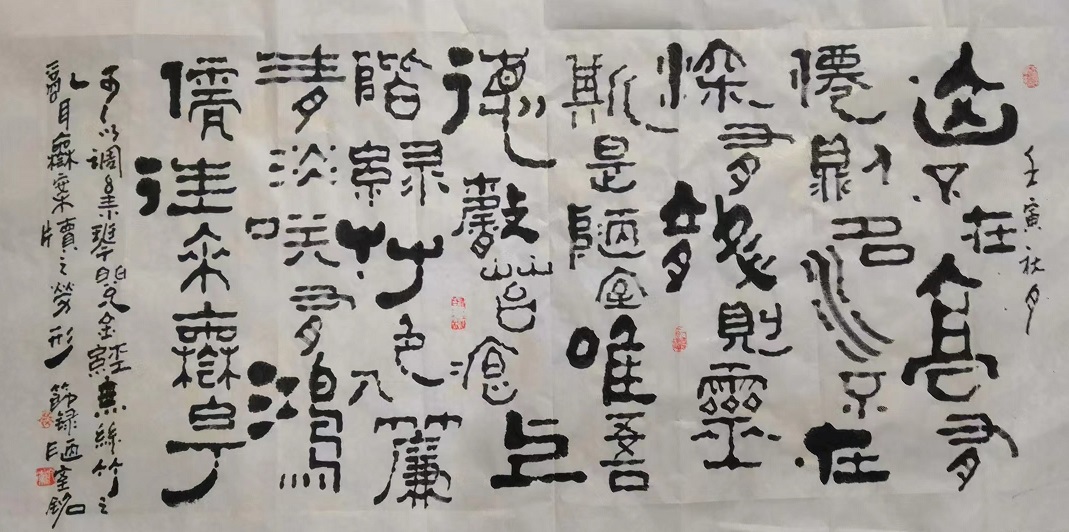 壬寅秋月
山不在高有
僊則名水不在
深有龍則靈
斯是陋室唯吾
德馨苔痕上
階綠艸色入簾
青淡咲有鴻
儒往來無白丁
可以調素琴閱金經無絲竹之
亂耳無案牘之勞形 節録陋室銘